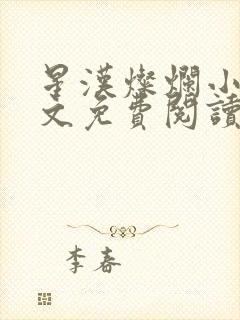 星漢燦爛小
文免費閱讀
李春